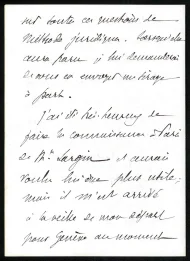 sur toute ces questions de
méthode juridique. Lorsqu'elle
aura paru je lui demanderai
de vous en envoyer un tirage
à part.
J'ai été très heureux de
faire la connaissance à Paris
de Mr. Sargin et aurais
voulu lui être plus utile,
mais il m'est arrivé
à la veille de mon départ
pour Genève au moment